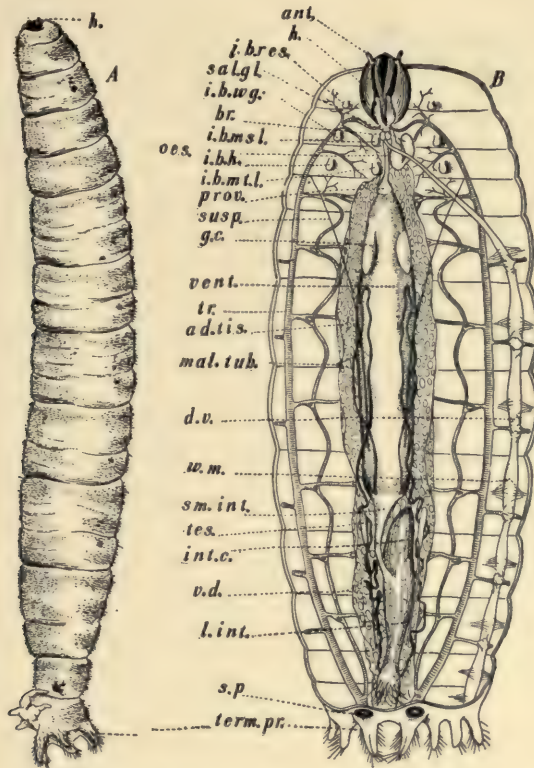 h.
A
ant.
h.
i.b.res.
sal.gl.
i.b.wg.
B
br.
oes.
i.b.msl.
i.b.h.
i.b.mt.l.
prov.
susp.
g.c.
vent.
tr.
ad.tis.
mal.tub.
d.v.
w.m.
sm.int.
tes.
int.c.
v.d.
l.int.
s.p.
term.pr.